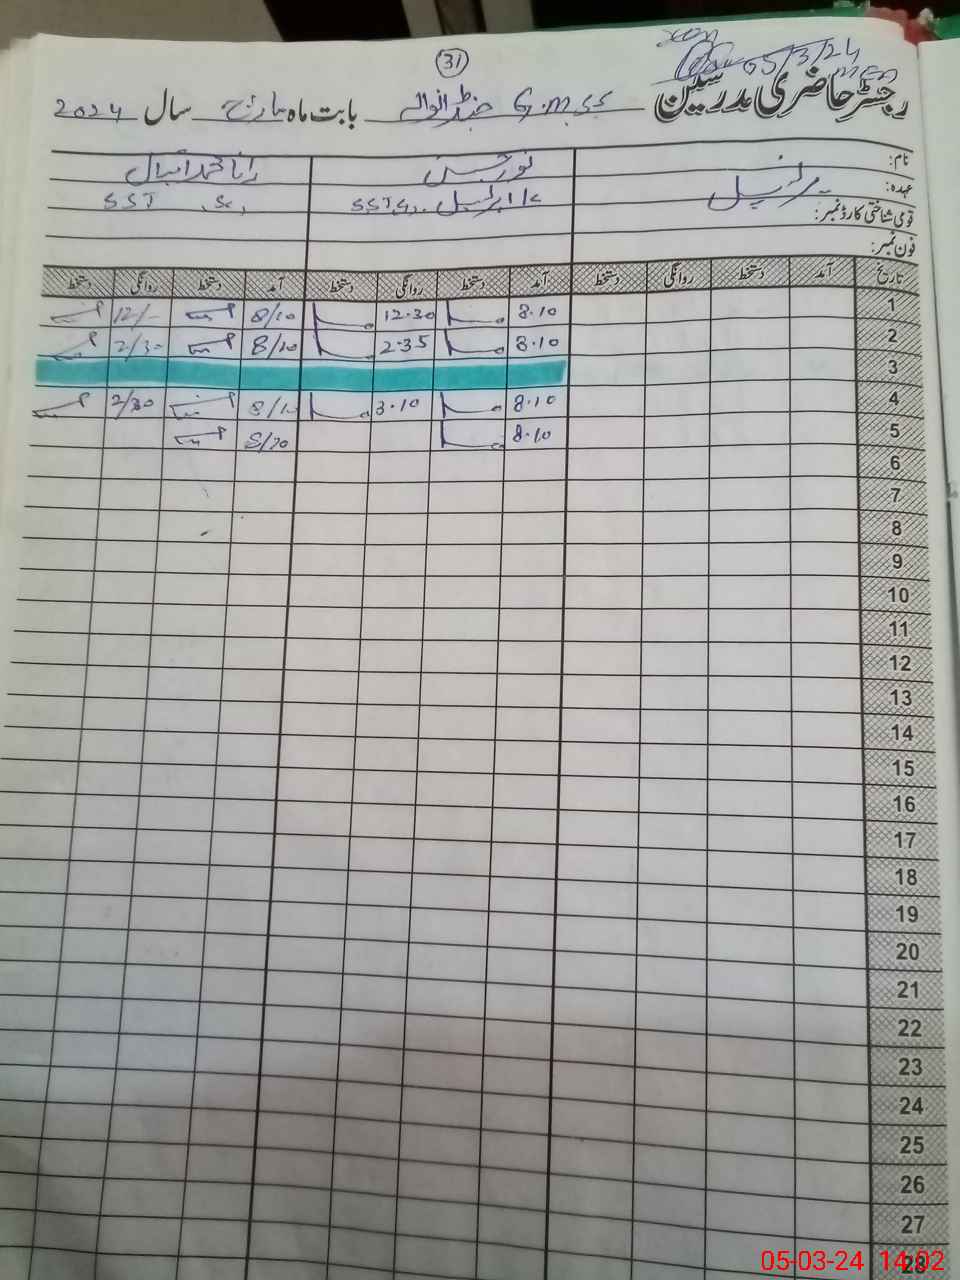 31
05/3/24
MEA
رجسٹر حاضری مدرسین G.M.S.S جنڈانوالہ بابت ماہ مارچ سال 2024
نام: نور حسن رانا محمد اقبال
عہدہ: پرنسپل SST Sc. SST Sc.
قومی شناختی کارڈ نمبر:
فون نمبر:
تاریخ آمد دستخط روانگی دستخط آمد دستخط روانگی دستخط آمد دستخط روانگی دستخط
1 8.10 12.30 8/10 12/-
2 8.10 2.35 8/10 2/30
3
4 8.10 3.10 8/10 2/30
5 8.10 8/10
6
7
8
9
10
11
12
13
14
15
16
17
18
19
20
21
22
23
24
25
26
27
28
05-03-24 14:02